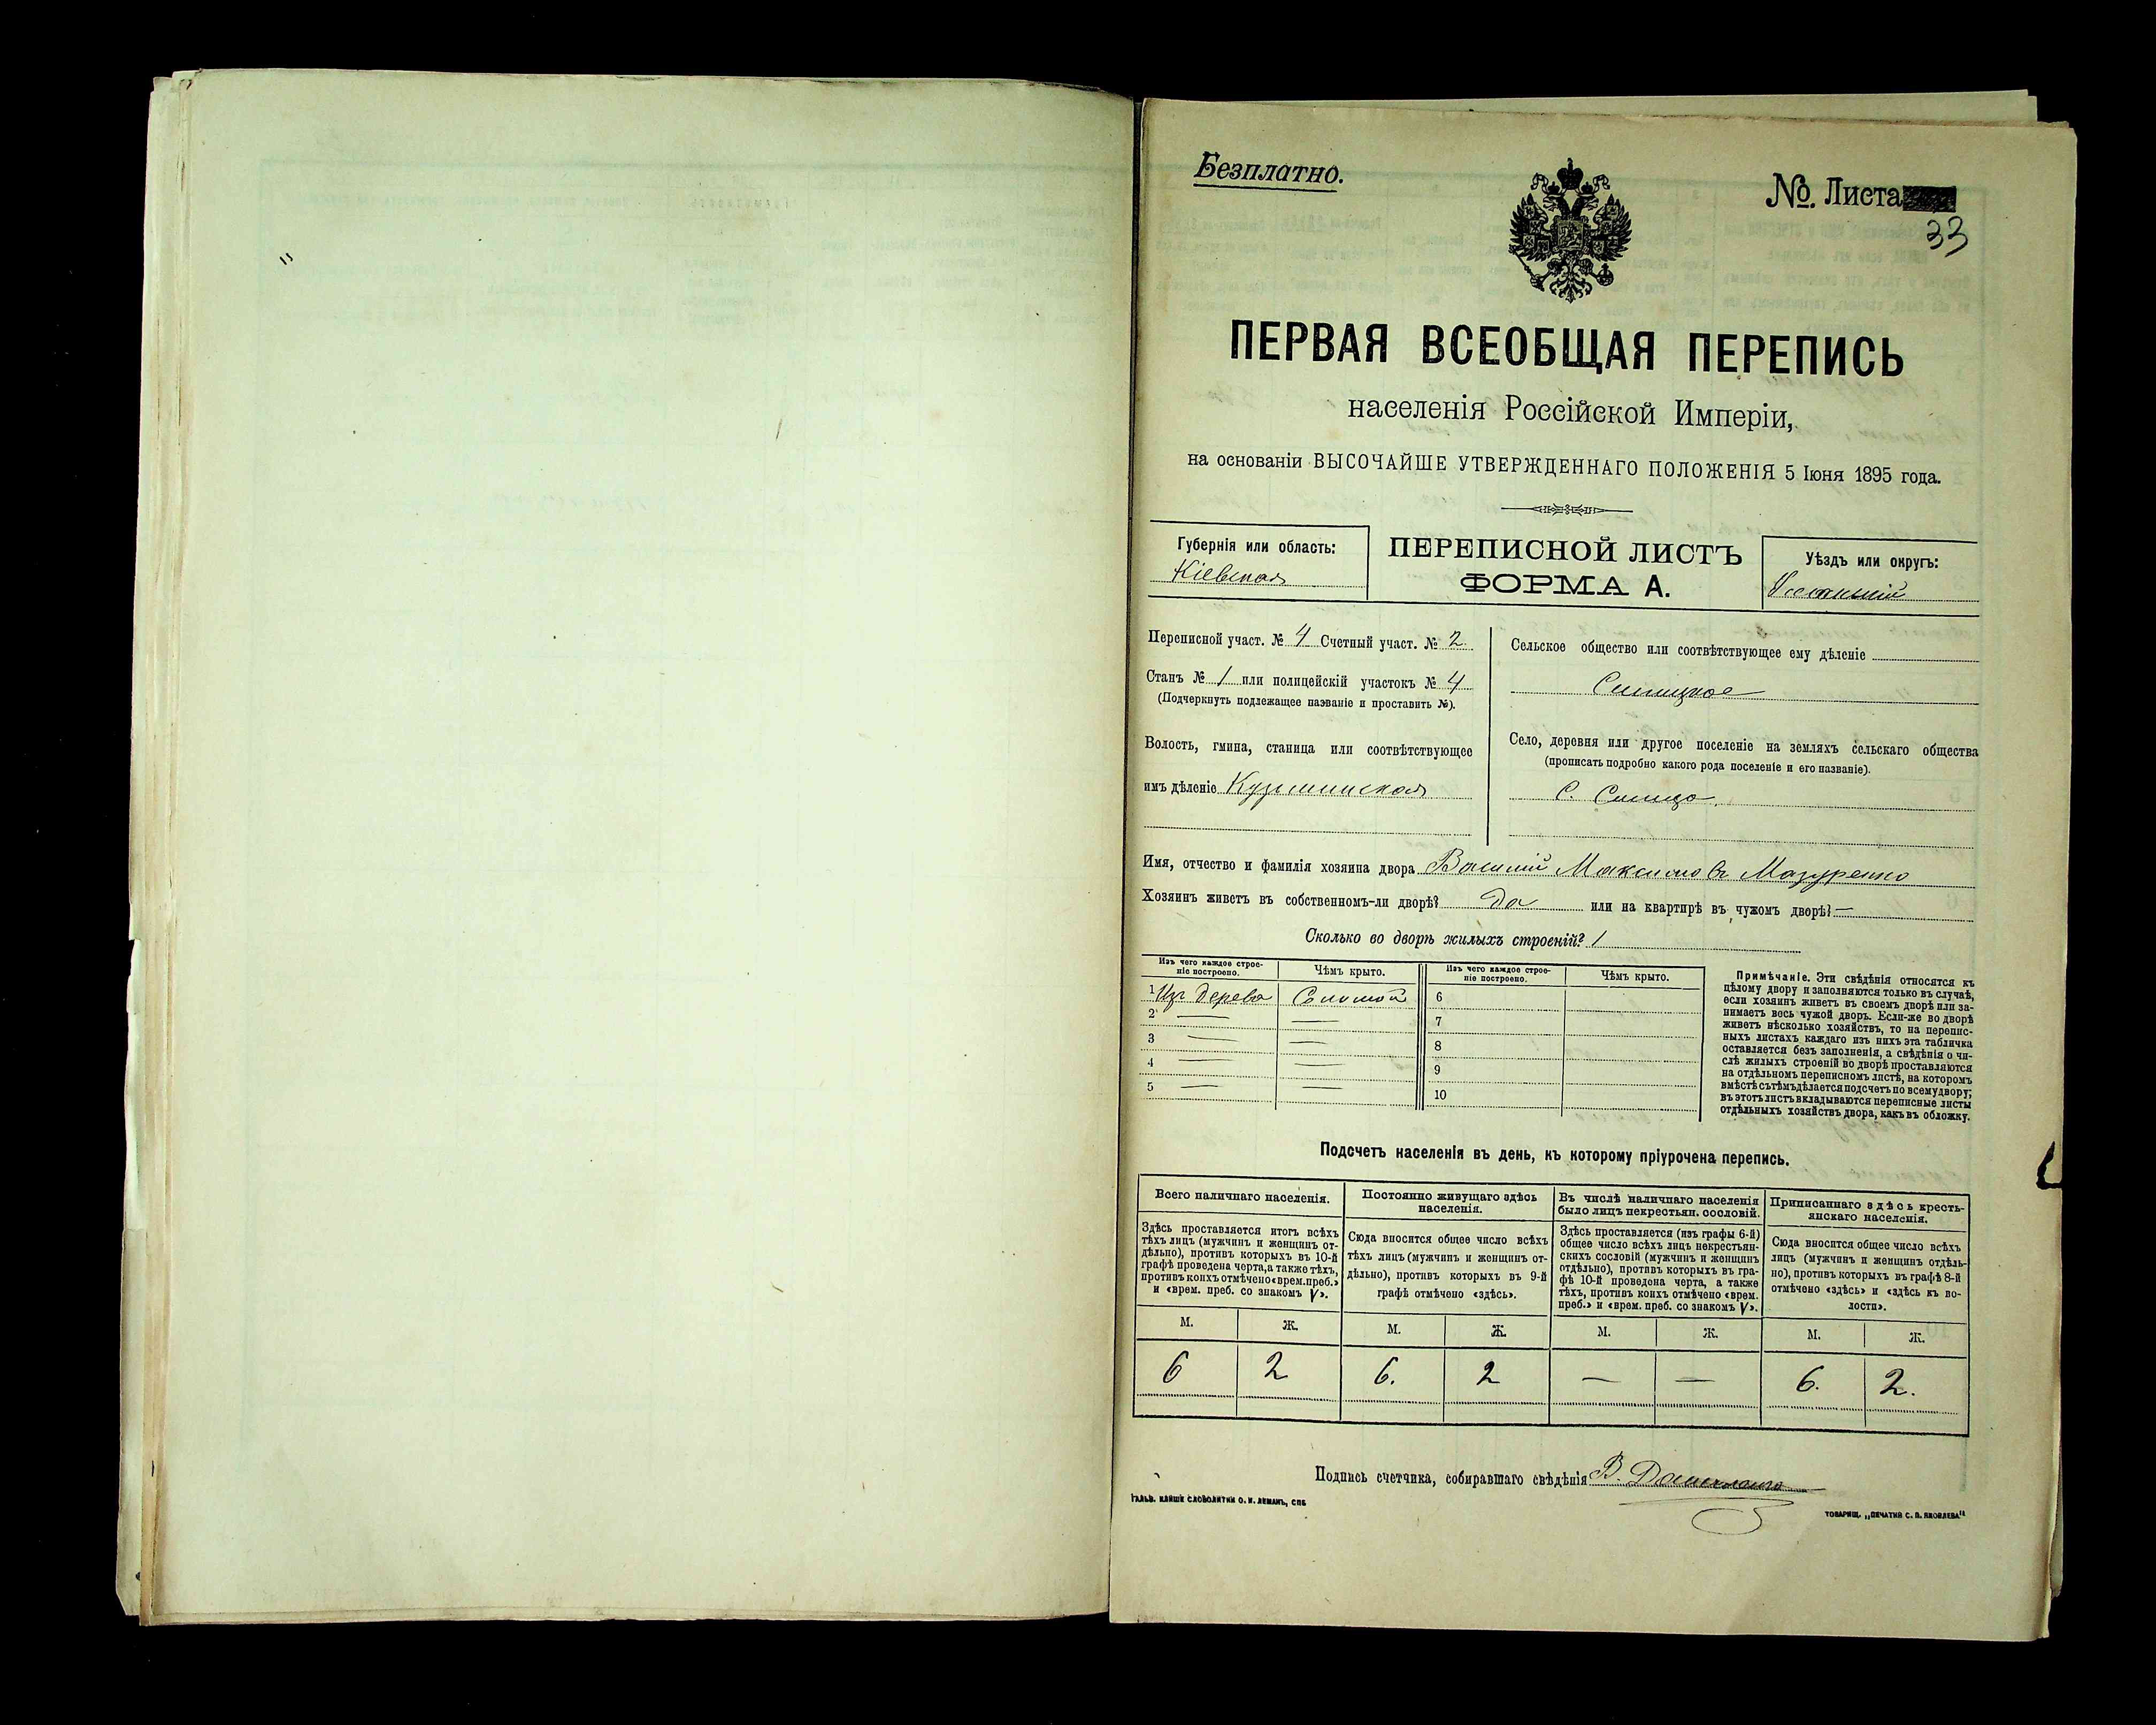 Безплатно.
№. Листа
33
ПЕРВАЯ ВСЕОБЩАЯ ПЕРЕПИСЬ
населенія Россійской Имперіи,
на основаніи ВЫСОЧАЙШЕ УТВЕРЖДЕННАГО ПОЛОЖЕНІЯ 5 Іюня 1895 года.
Губернія или область:
Кіевская
ПЕРЕПИСНОЙ ЛИСТЪ
ФОРМА А.
Уѣздъ или округъ:
Переписной участ. № 4 Счетный участ. № 2
Станъ № 1 или полицейскій участокъ № 4
(Подчеркнуть подлежащее названіе и проставить №).
Волость, гмина, станица или соотвѣтствующее
имъ дѣленіе Кузьминская
Сельское общество или соотвѣтствующее ему дѣленіе
Синицкое
Село, деревня или другое поселеніе на земляхъ сельскаго общества
(прописать подробно какого рода поселеніе и его названіе).
С. Синица
Имя, отчество и фамилія хозяина двора Василій Максимовъ Мазуренко
Хозяинъ живетъ въ собственномъ-ли дворѣ? Да или на квартирѣ въ чужомъ дворѣ? —
Сколько во дворѣ жилыхъ строеній? 1
Изъ чего каждое строе-
ніе построено.
Чѣмъ крыто.
Изъ чего каждое строе-
ніе построено.
Чѣмъ крыто.
1 Изъ дерева Соломой 6
2 — — 7
3 — — 8
4 — — 9
5 — — 10
Примѣчаніе. Эти свѣдѣнія относятся къ
цѣлому двору и заполняются только въ случаѣ,
если хозяинъ живетъ въ своемъ дворѣ или за-
нимаетъ весь чужой дворъ. Если-же во дворѣ
живетъ нѣсколько хозяйствъ, то на перепис-
ныхъ листахъ каждаго изъ нихъ эта табличка
оставляется безъ заполненія, а свѣдѣнія о чи-
слѣ жилыхъ строеній во дворѣ проставляются
на отдѣльномъ переписномъ листѣ, на которомъ
вмѣстѣ съ тѣмъ дѣлается подсчетъ по всему двору;
въ этотъ листъ вкладываются переписные листы
отдѣльныхъ хозяйствъ двора, какъ въ обложку.
Подсчетъ населенія въ день, къ которому пріурочена перепись.
Всего наличнаго населенія.
Здѣсь проставляется итогъ всѣхъ
тѣхъ лицъ (мужчинъ и женщинъ от-
дѣльно), противъ которыхъ въ 10-й
графѣ проведена черта, а также тѣхъ,
противъ коихъ отмѣчено «врем. преб.»
и «врем. преб. со знакомъ V».
Постоянно живущаго здѣсь
населенія.
Сюда вносится общее число всѣхъ
тѣхъ лицъ (мужчинъ и женщинъ от-
дѣльно), противъ которыхъ въ 9-й
графѣ отмѣчено «здѣсь».
Въ числѣ наличнаго населенія
было лицъ некрестьян. сословій.
Здѣсь проставляется (изъ графы 6-й)
общее число всѣхъ лицъ некрестьян-
скихъ сословій (мужчинъ и женщинъ
отдѣльно), противъ которыхъ въ гра-
фѣ 10-й проведена черта, а также
тѣхъ, противъ коихъ отмѣчено «врем.
преб.» и «врем. преб. со знакомъ V».
Приписаннаго здѣсь кресть-
янскаго населенія.
Сюда вносится общее число всѣхъ
лицъ (мужчинъ и женщинъ отдѣль-
но), противъ которыхъ въ графѣ 8-й
отмѣчено «здѣсь» и «здѣсь къ во-
лости».
М. Ж. М. Ж. М. Ж. М. Ж.
6 2 6. 2 — — 6. 2.
Подпись счетчика, собиравшаго свѣдѣнія В.
ГАЛЬВ. КЛИШЕ СЛОВОЛИТНИ О. И. ЛЕМАНЪ, СПБ
ТОВАРИЩ. „ПЕЧАТНЯ С. П. ЯКОВЛЕВА“